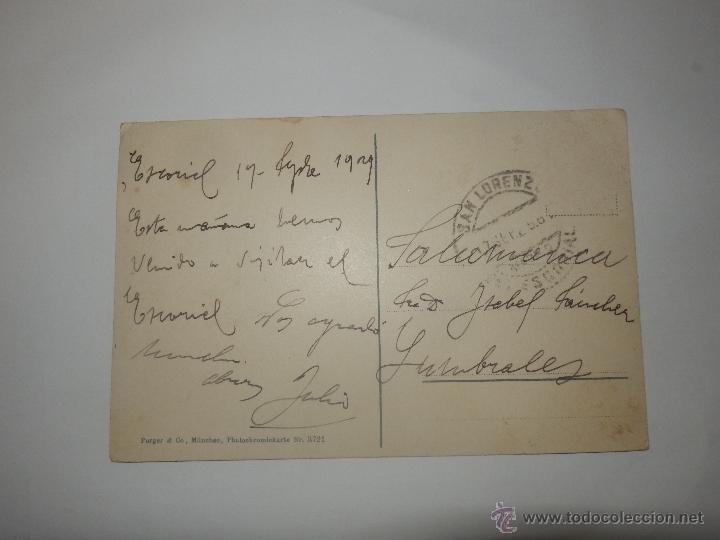 Escorial 17- Sybre 1929
Esta mañana hemos
Venido a Visitar el
Escorial Nos agradó
mucho.
Julio
Purger & Co., München, Photochromiekarte Nr. 3721
SAN LORENZO
ESCORIAL
Salamanca
Sra Dª Isabel Sánchez
Lumbrales
www.todocoleccion.net